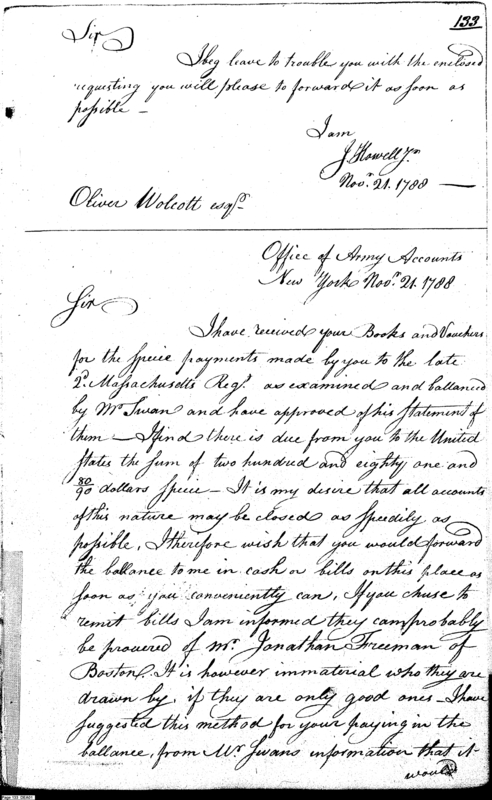 133
Sir
I beg leave to trouble you with the enclosed
requesting you will please to forward it as soon as
possible —
I am
J. Howell Jr.
Novr. 21. 1788 —
Oliver Wolcott esqr.
Office of Army Accounts
New York Novr. 21. 1788
Sir
I have received your Books and Vouchers
for the specie payments made by you to the late
2d. Massachusetts Regt. as examined and ballanced
by Mr Swan and have approved of his statement of
them — I find there is due from you to the United
States the sum of two hundred and eighty one and
80/90 dollars specie — It is my desire that all accounts
of this nature may be closed as speedily as
possible, I therefore wish that you would forward
the ballance to me in cash or bills on this place as
soon as you conveniently can, If you chuse to
remit bills I am informed they can probably
be procured of Mr. Jonathan Freeman of
Boston. It is however immaterial who they are
drawn by, if they are only good ones — I have
suggested this method for your paying in the
ballance, from Mr Swans information that it
would